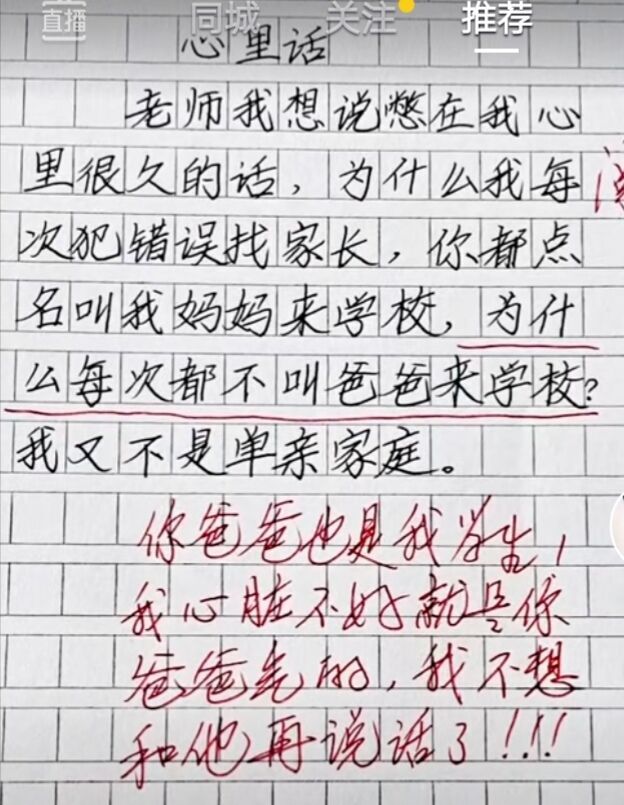 直播 同城 关注 推荐
心里话
老师我想说憋在我心
里很久的话，为什么我每
次犯错误找家长，你都点
名叫我妈妈来学校，为什
么每次都不叫爸爸来学校？
我又不是单亲家庭。
你爸爸也是我学生，
我心脏不好就是你
爸爸气的，我不想
和他再说话了！！！